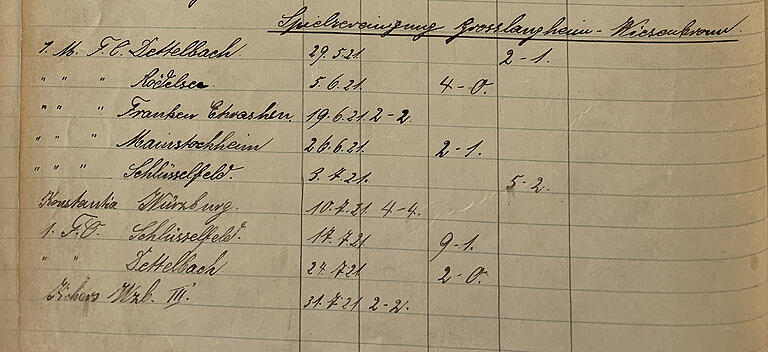 Spielvereinigung Grosslangheim - Wiesenbronn.
1. M. F.C. Dettelbach 29.5.21. 2-1.
" " " Rödelsee 5.6.21. 4-0.
" " " Franken Etwashsn. 19.6.21. 2-2.
" " " Mainstockheim 26.6.21. 2-1.
" " " Schlüsselfeld. 3.7.21. 5-2.
Konstantia Würzburg. 10.7.21. 4-4.
1. F.C. Schlüsselfeld. 17.7.21 9-1.
" " Dettelbach 24.7.21 2-0.
Kickers Wzb. III. 31.7.21 2-2.